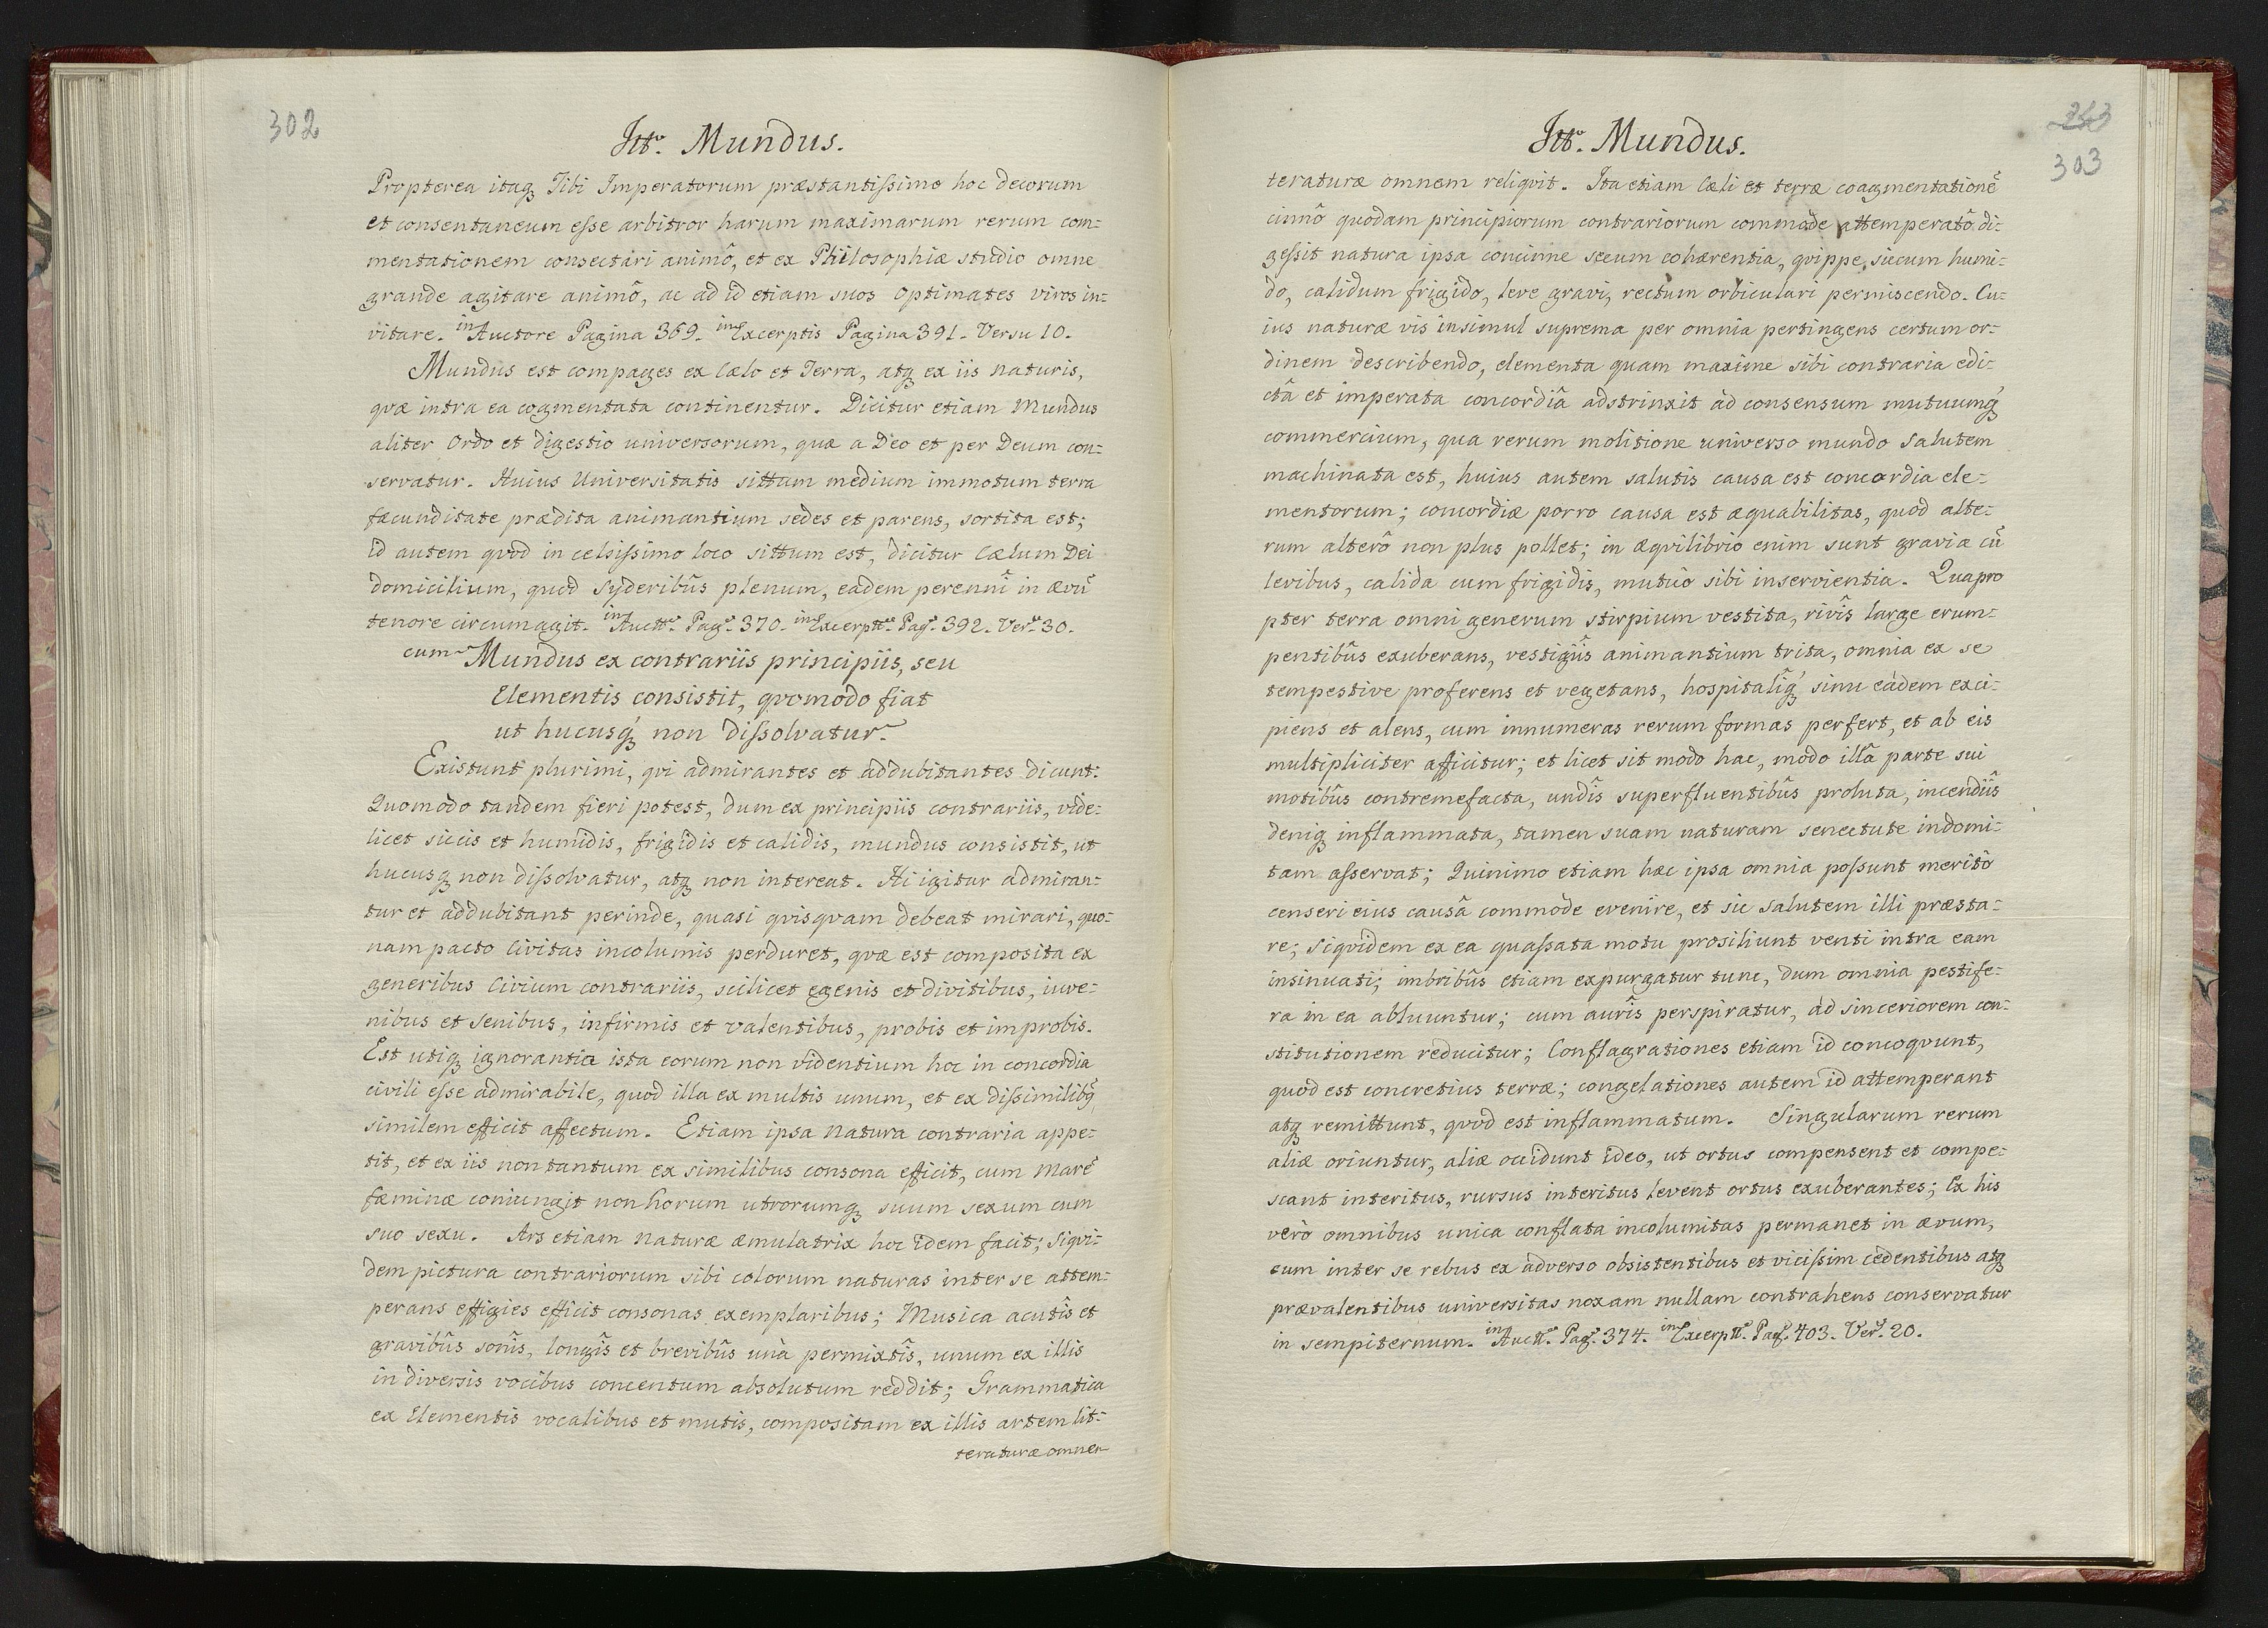 302
Itto. Mundus.
Propterea itaq; Tibi Imperatorum præstantissime hoc decorum
et consentaneum esse arbitror harum maximarum rerum com=
mentationem consectari animô, et ex Philosophiæ studio omne
grande agitare animô, ac ad id etiam suos Optimates viros in=
vitare. in Auctore Pagina 369. in Excerptis Pagina 391. Versu 10.
Mundus est compages ex Cælo et Terra, atq; ex iis naturis,
quæ intra ea cogmentata continentur. Dicitur etiam Mundus
aliter Ordo et digestio universorum, quæ a Deo et per Deum con=
servatur. Huius Universitatis sittum medium immotum terra
fæcunditate prædita animantium sedes et parens, sortita est;
id autem quod in celsissimo loco sittum est, dicitur Cælum Dei
domicilium, quod syderibûs plenum, eadem perenni in ævũ
tenore circumagit. in Auctt. Pag. 370. in Excerptt. Pag. 392. Ver. 30.
cum Mundus ex contrariis principiis, seu
Elementis consistit, quomodo fiat
ut hucusq; non dissolvatur.
Existunt plurimi, qui admirantes et addubitantes dicunt:
Quomodo tandem fieri potest, dum ex principiis contrariis, vide=
licet siccis et humidis, frigidis et calidis, mundus consistit, ut
hucusq; non dissolvatur, atq; non intereat. Hi igitur admiran=
tur et addubitant perinde, quasi quisquam debeat mirari, quo=
nam pacto Civitas incolumis perduret, quæ est composita ex
generibus Civium contrariis, scilicet egenis et divitibus, iuve=
nibus et senibus, infirmis et valentibus, probis et improbis.
Est utiq; ignorantia ista eorum non videntium hoc in concordia
civili esse admirabile, quod illa ex multis unum, et ex dissimilibq;
similem efficit affectum. Etiam ipsa Natura contraria appe=
tit, et ex iis non tantum ex similibus consona efficit, cum Marẽ
fæminæ coniungit non horum utrorumq; suum sexum cum
suo sexu. Ars etiam naturæ æmulatrix hoc idem facit; siqvi=
dem pictura contrariorum sibi colorum naturas inter se attem=
perans effigies efficit consonas exemplaribus; Musica acutîs et
gravibûs sonîs, longîs et brevibûs unà permixtîs, unum ex illis
in diversis vocibus concentum absolutum reddit; Grammatica
ex Elementis vocalibus et mutis, compositam ex illis artem lit=
teraturæ omnem
243
303
Itto. Mundus.
teraturæ omnem reliqvit. Ita etiam Cæli et terræ coagmentationẽ
cinnô quodam principiorum contrariorum commode attemperatô di=
gessit natura ipsa concinne secum cohærentia, qvippe, siccum humi=
do, calidum frigido, leve gravi, rectum orbiculari permiscendo. Cu=
ius naturæ vis insimul suprema per omnia pertingens certum or=
dinem describendo, elementa quam maxime sibi contraria edi=
ctâ et imperata concordiâ adstrinxit ad consensum mutuumq;
commercium, qua rerum molitione universo mundo salutem
machinata est, huius autem salutis causa est concordia ele=
mentorum; concordiæ porro causa est æquabilitas, quod alte=
rum alterô non plus pollet; in æqvilibrio enim sunt gravia cũ
levibus, calida cum frigidis, mutuo sibi inservientia. Quapro
pter terra omni generum stirpium vestita, rivîs large erum=
pentibûs exuberans, vestigiîs animantium trita, omnia ex se
tempestive proferens et vegetans, hospitaliq; sinu eâdem exci=
piens et alens, cum innumeras rerum formas perfert, et ab eis
multipliciter afficitur; et licet sit modo hac, modo illâ parte sui
motibûs contremefacta, undîs superfluentibûs proluta, incendiîs
deniq; inflammata, tamen suam naturam senectute indomi=
tam asservat; Quinimo etiam hæc ipsa omnia possunt meritò
censeri eius causâ commode evenire, et sic salutem illi præsta=
re; siqvidem ex ea quassata motu prosiliunt venti intra eam
insinuati; imbribûs etiam expurgatur tunc, dum omnia pestife=
ra in ea abluuntur; cum aurîs perspiratur, ad sinceriorem con=
stitutionem reducitur; Conflagrationes etiam id concoqvunt,
quod est concretius terræ; congelationes autem id attemperant
atq; remittunt, qvod est inflammatum. Singularum rerum
aliæ oriuntur, aliæ occidunt ideo, ut ortus compensent et compe=
scant interitus, rursus interitus levent ortus exuberantes; Ex his
verò omnibus unica conflata incolumitas permanet in ævum,
cum inter se rebus ex adverso obsistentibus et vicissim cedentibus atq;
prævalentibus universitas noxam nullam contrahens conservatur
in sempiternum. in Auctt. Pag. 374. in Excerptt. Pag. 403. Ver. 20.